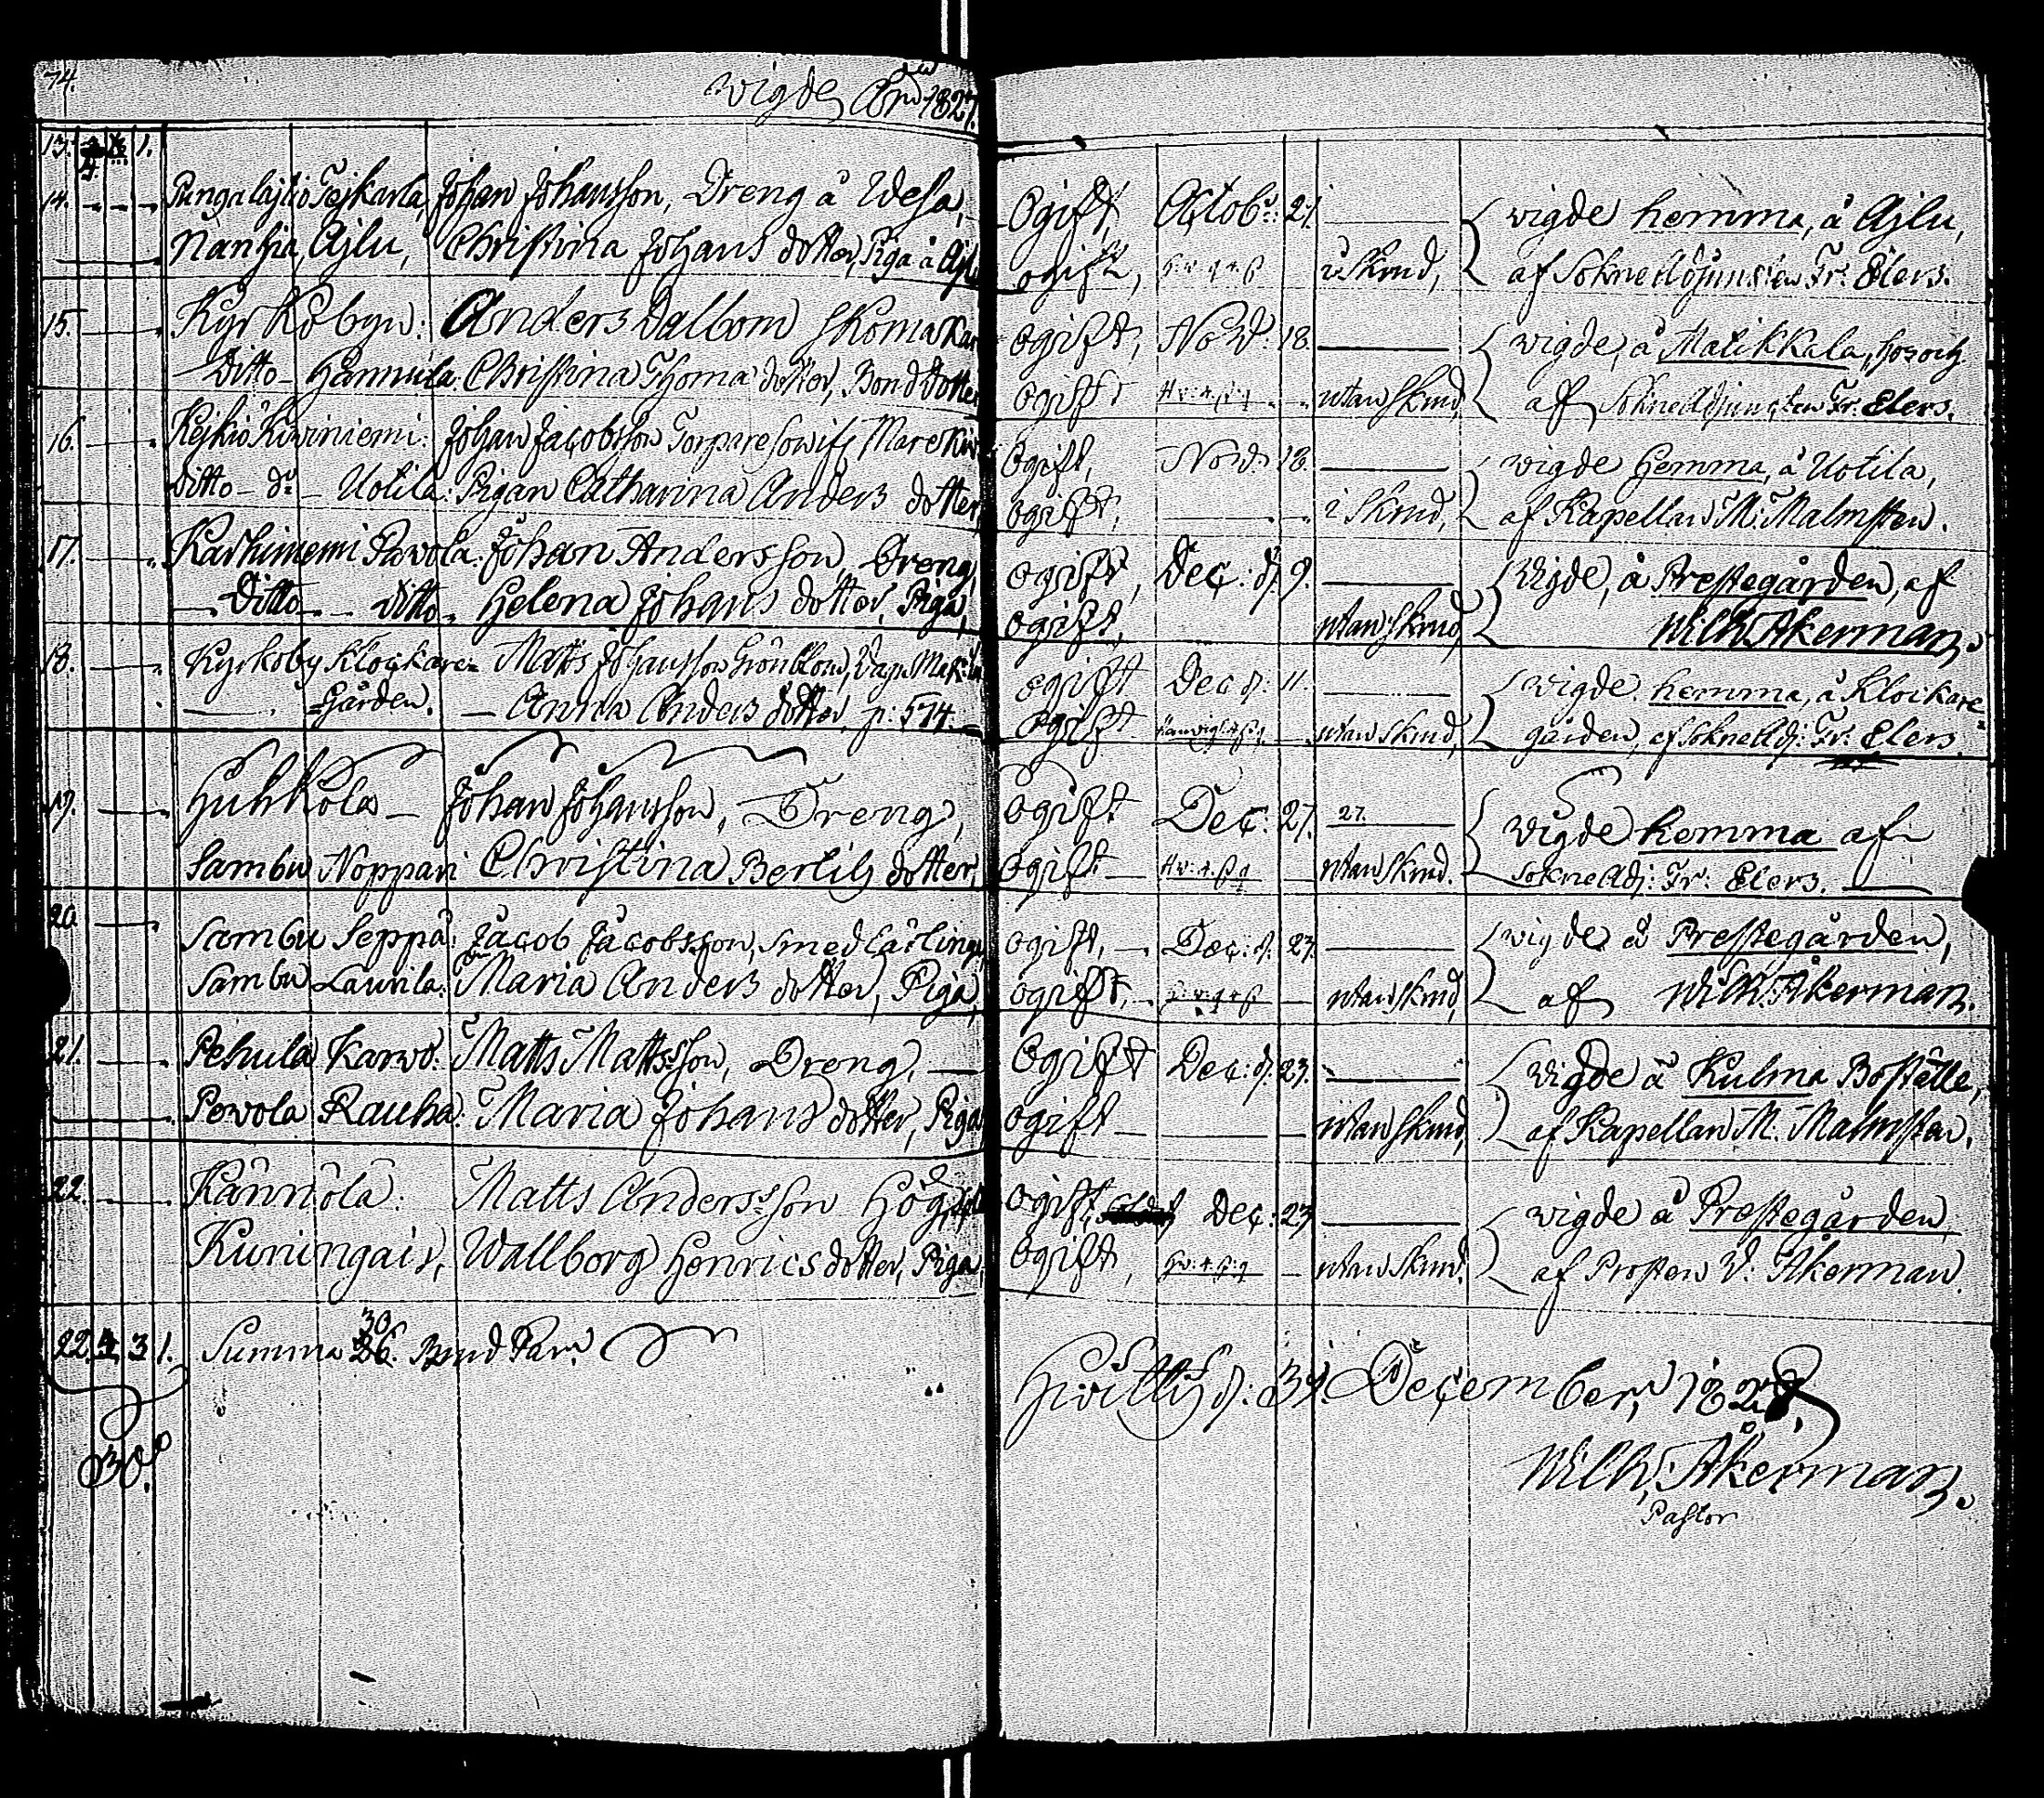 74.
Wigde Åhr 1827.
13. 4. 1.
14. Pungalajtio Tejkarla, Johan Johansson, Dreng å Wesa, Ogift, Octob: 21. wigde hemma, å Ajlu,
Nanhia, Ajlu, Christina Johans dotter, Piga å Ajlu ogift, i Skrud, af Sokne Adjuncten Fr: Elers.
15. Kyrkobyn: Anders Dalbom Skomakar ogift, Nov: 18. wigde, å Matikkala, hos
Ditto - Hannula: Christina Thomadotter, Bond Dotter ogift utan Skrud, af Sokne Adjuncten Fr: Elers.
16. Kejkiö Kiviniemi: Johan Jacobsson Torpare Ogift, Nov: 18. wigde hemma, å Uotila,
ditto - d:o - Uotila: Pigan Catharina Anders dotter, ogift, i Skrud, af Kapellan M: Malmsten.
17. Karhiniemi Pavola: Johan Andersson, Dreng, ogift, Dec: d. 9. Wigde, å Prestegården, af
Ditto - ditto - Helena Johans dotter, Piga, ogift, utan skrud, Wilh. Åkerman.
18. Kyrkoby Klockare= Matts Johansson Grönblom, ogift Dec d: 11. wigde hemma, å Klockare=
=Gården. - Anna Anders dotter, p: 574. ogift utan skrud, gården, af Sokne Adj: Fr: Elers.
19. Huhkola - Johan Johansson, Dreng, Ogift Dec: 27. 27. wigde hemma af
Sambu Noppari Christina Bertils dotter, Ogift - utan skrud. Sokne Adj: Fr: Elers.
20. Sambu Seppä: Jacob Jacobsson, Smed Lärling, ogift, - Dec: d. 23. wigde å Prestegården,
Sambu Laurila: Maria Anders dotter, Piga, ogift, utan skrud, af Wilh. Åkerman.
21. Pehula Karvo: Matts Mattsson, Dreng, Ogift Dec: d. 23. wigde å Kulma Boställe,
Pevola Rauha: Maria Johans dotter, Piga ogift utan skrud, af Kapellan M. Malmsten,
22. Kännölä: Matts Andersson ogift, Dec: 23. wigde å Prestegården,
Kuningais, Wallborg Henrics dotter, Piga, Ogift, utan Skrud. af Prosten W: Åkerman
22. 4. 3. 1. Summa 30 26. Brud Par.
30.
Hvittis d: 31. December, 1827.
Wilh. Åkerman.
Pastor